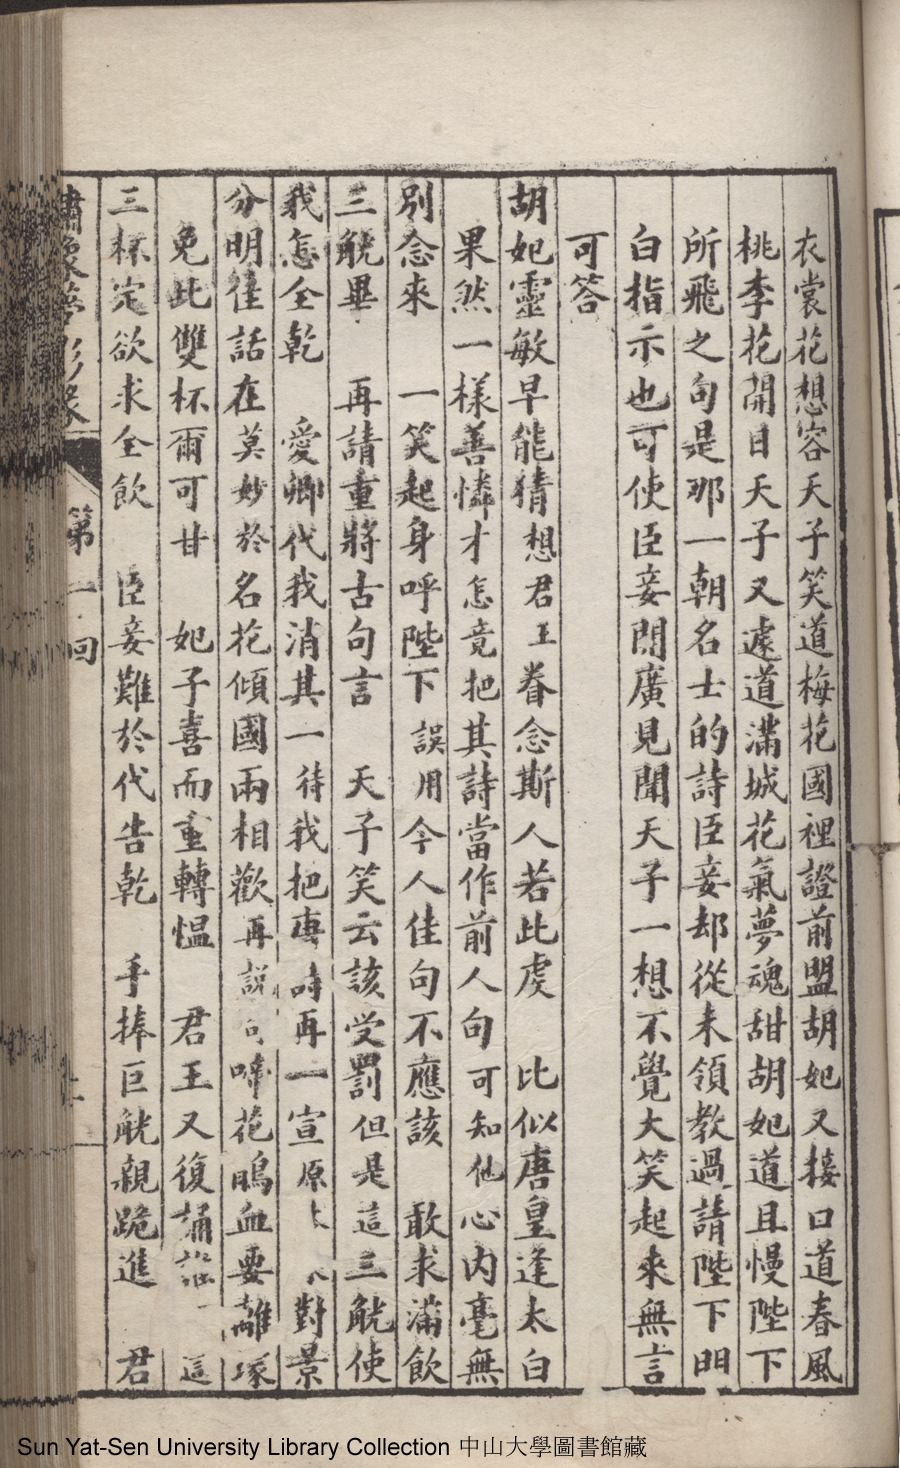 衣裳花想容天子笑道梅花國裡證前盟胡妃又接口道春風
桃李花開日天子又遽道滿城花氣夢魂甜胡妃道且慢陛下
所飛之句是那一朝名士的詩臣妾却從未領教過請陛下明
白指示也可使臣妾開廣見聞天子一想不覺大笑起來無言
可答
胡妃靈敏早能猜 想君王眷念斯人若此虔 比似唐皇逢太白
果然一樣善憐才 怎竟把其詩當作前人句 可知他心內毫無
別念來 一笑起身呼陛下 誤用今人佳句不應該 敢求滿飲
三觥畢 再請重將古句言 天子笑云該受罰 但是這三觥使
我怎全乾 愛卿代我消其一 待我把唐詩再一宣 原 對景
分明佳話在 莫妙於名花傾國兩相歡 再說句啼花鵑血要離塚
免此雙杯爾可甘 妃子喜而重轉慍 君王又復誦 這
三杯定欲求全飲 臣妾難於代告乾 手捧巨觥親跪進 君
繡像夢影緣 第一回